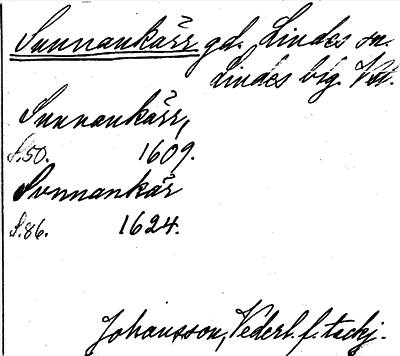 Sunnankärr gd, Lindes sn.
Lindes blg. Vstl.
Sunnankärr,
S. 50. 1609.
Svnnankär
S. 86. 1624.
Johansson, Vederl. f. tackj.